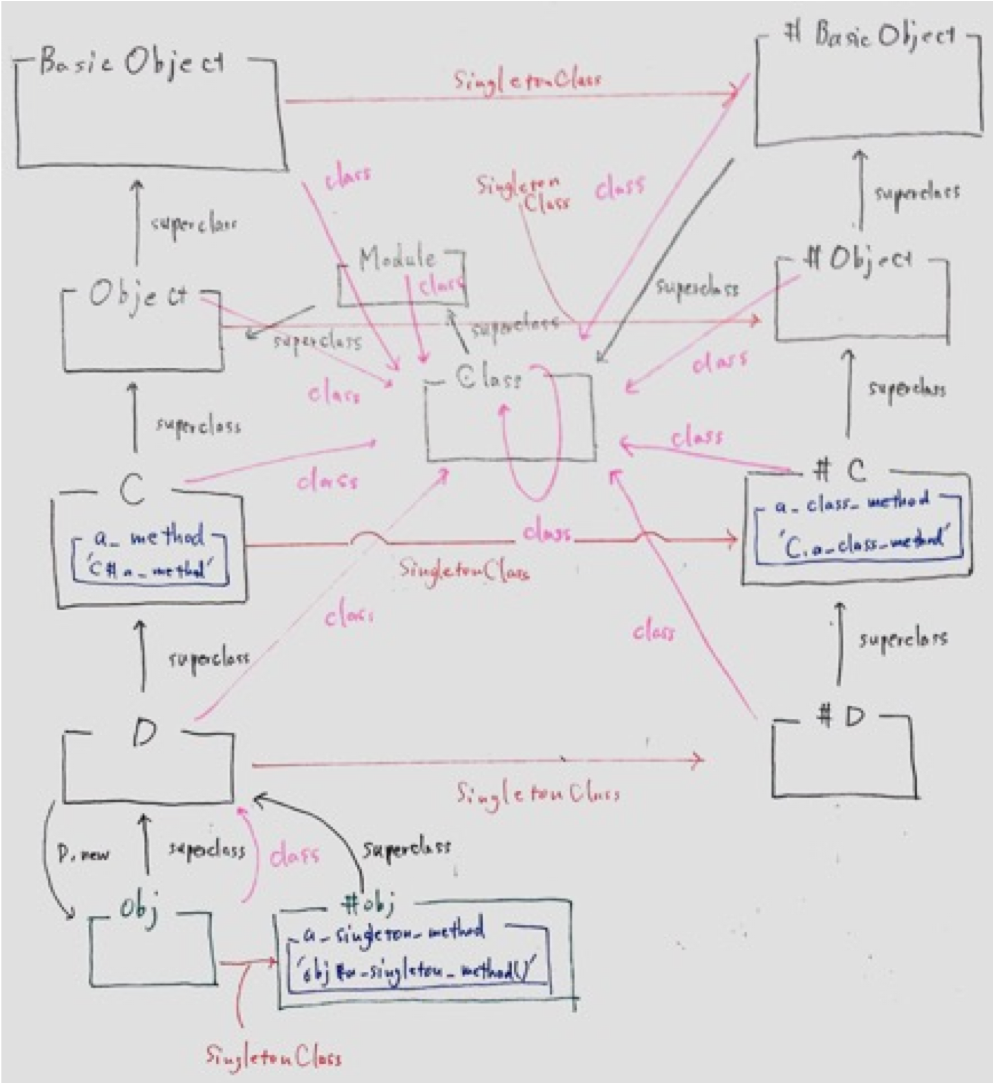 Basic Object
# Basic Object
SingletonClass
class
Singleton
Class
class
superclass
superclass
Module
class
Object
# Object
superclass
superclass
superclass
class
class
Class
superclass
superclass
C
class
class
# C
a_method
a_class_method
'C.a_class_method'
class
SingletonClass
class
class
superclass
superclass
D
# D
SingletonClass
D.new
superclass
class
superclass
obj
#obj
a_singleton_method
SingletonClass